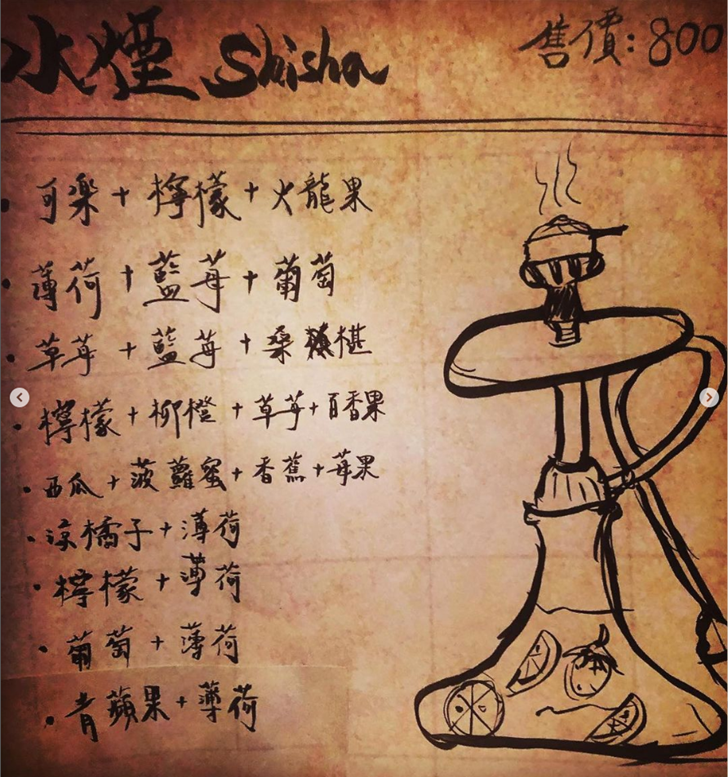 水煙 Shisha 售價:800
• 可楽+檸檬+火龍果
• 薄荷+藍莓+葡萄
• 草莓+藍莓+桑椹
• 檸檬+柳橙+草莓+百香果
• 西瓜+菠蘿蜜+香蕉+莓果
• 涼橘子+薄荷
• 檸檬+薄荷
• 葡萄+薄荷
• 青蘋果+薄荷